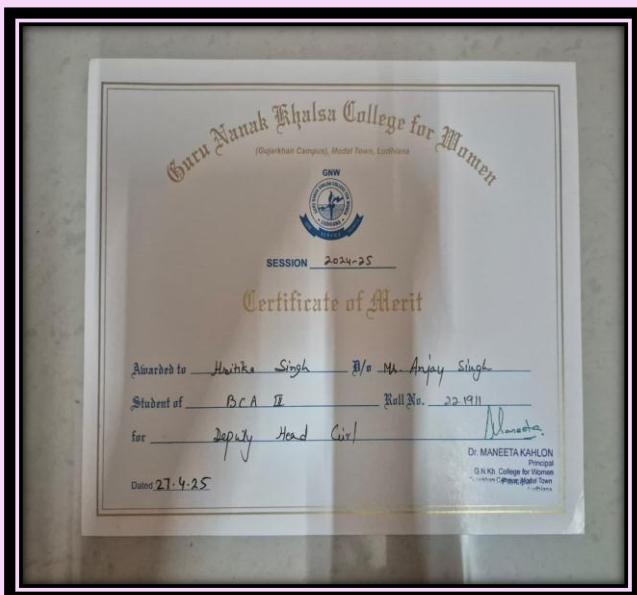 Guru Nanak Khalsa College for Women
(Gujarkhan Campus), Model Town, Ludhiana
GNW
SESSION 2024-25
Certificate of Merit
Awarded to Singh D/o Mr. Anjay Singh
Student of BCA Roll No. 221911
for Deputy Head Girl
Dr. MANEETA KAHLON
Principal
G.N.Kh. College for Women
Model Town
Dated 27.4.25